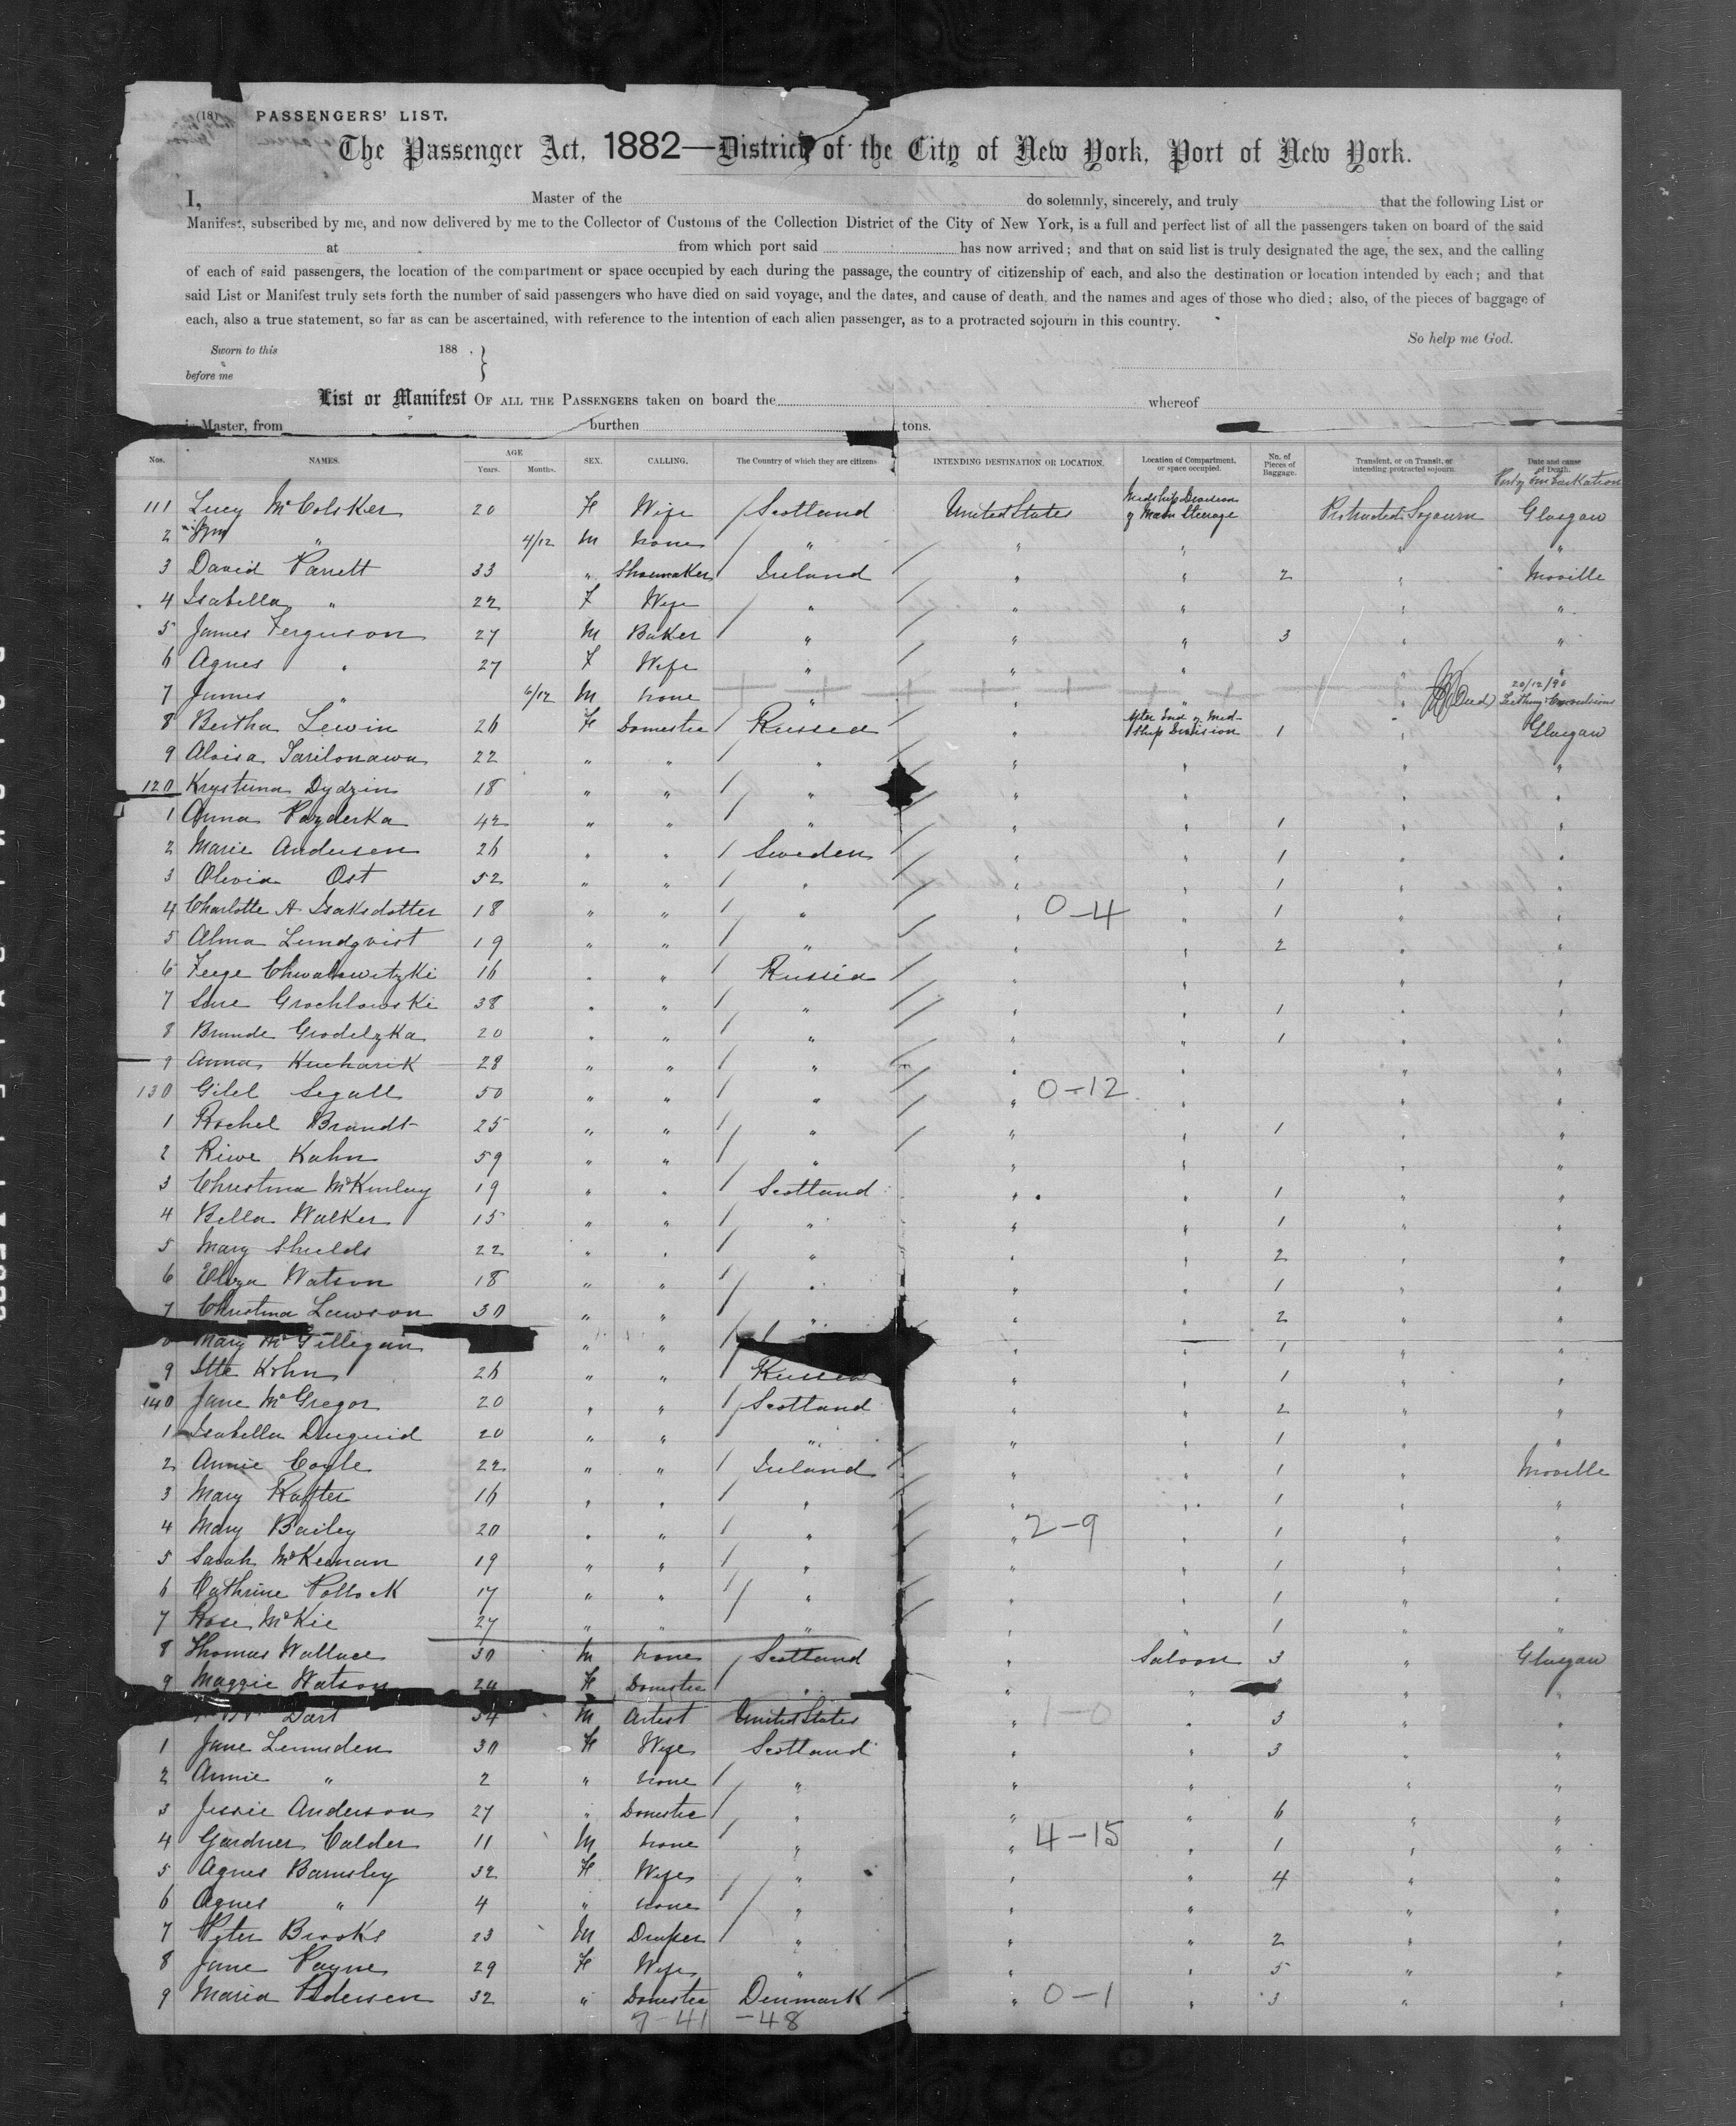 PASSENGERS' LIST.
The Passenger Act, 1882—District of the City of New York, Port of New York.
I, Master of the do solemnly, sincerely, and truly that the following List or
Manifest, subscribed by me, and now delivered by me to the Collector of Customs of the Collection District of the City of New York, is a full and perfect list of all the passengers taken on board of the said
at from which port said has now arrived; and that on said list is truly designated the age, the sex, and the calling
of each of said passengers, the location of the compartment or space occupied by each during the passage, the country of citizenship of each, and also the destination or location intended by each; and that
said List or Manifest truly sets forth the number of said passengers who have died on said voyage, and the dates, and cause of death, and the names and ages of those who died; also, of the pieces of baggage of
each, also a true statement, so far as can be ascertained, with reference to the intention of each alien passenger, as to a protracted sojourn in this country.
So help me God.
Sworn to this 188 .
before me
List or Manifest OF ALL THE PASSENGERS taken on board the whereof
is Master, from burthen tons.
Nos. NAMES. AGE Years. Months. SEX. CALLING. The Country of which they are citizens. INTENDING DESTINATION OR LOCATION. Location of Compartment, or space occupied. No. of Pieces of Baggage. Transient, or on Transit, or intending protracted sojourn. Date and cause of Death.
Port of Embarkation
111 Lucy McColsker 20 F Wife Scotland United States Midship Division of Main Steerage Protracted Sojourn Glasgow
2 Wm " 4/12 M None " " " " "
3 David Parrett 33 " Shoemaker Ireland " " 2 " Moville
4 Isabella " 22 F Wife " " " " "
5 James Ferguson 27 M Baker " " " 3 " "
6 Agnes " 27 F Wife " " " " "
7 James " 6/12 M None " " " (Died) 20/12/90 Teething Convulsions
8 Bertha Lewin 26 F Domestic Russia " After End of Mid-Ship Division 1 " Glasgow
9 Aloisa 22 " " " " " " "
120 Krystuna Dydzin 18 " " " " " " "
1 Anna Pazderka 42 " " " " " 1 " "
2 Marie Andersen 26 " " Sweden " " 1 " "
3 Olivia Ost 52 " " " " " 1 " "
4 Charlotte A Isaksdotter 18 " " " " 0-4 " 1 " "
5 Alma Lundqvist 19 " " " " " 2 " "
6 Feege 16 " " Russia " " " "
7 Grochlowski 38 " " " " " 1 " "
8 Brunde Grodelzka 20 " " " " " 1 " "
9 Anna Kucharik 28 " " " " " " "
130 Gilel Segall 50 " " " " 0-12 " " "
1 Rochel Brandt 25 " " " " " 1 " "
2 Riwe Kahn 59 " " " " " " "
3 Christina McKinlay 19 " " Scotland " " 1 " "
4 Bella Walker 15 " " " " " 1 " "
5 Mary Shields 22 " " " " " 2 " "
6 Eliza Watson 18 " " " " " 1 " "
7 Christina Lawson 30 " " " " " 2 " "
8 Mary McGilligan " " " " 1 " "
9 Itte Kohn 26 " " Russia " " 1 " "
140 Jane McGregor 20 " " Scotland " " 2 " "
1 Isabella Duguid 20 " " " " " 1 " "
2 Annie Coyle 22 " " Ireland " " 1 " Moville
3 Mary Rafter 16 " " " " " 1 " "
4 Mary Bailey 20 " " " " 2-9 " 1 " "
5 Sarah McKeenan 19 " " " " " 1 " "
6 Cathrine Pollock 17 " " " " " 1 " "
7 Rose McKie 27 " " " " " 1 " "
8 Thomas Wallace 30 M None Scotland " Saloon 3 " Glasgow
9 Maggie Watson 24 F Domestic " " " " "
Dart 34 M Artist United States " 1-0 " 3 " "
1 Jane Lumsden 30 F Wife Scotland " " 3 " "
2 Annie " 2 " None " " " " "
3 Jessie Anderson 27 " Domestic " " " 6 " "
4 Gardner Calder 11 M None " " 4-15 " 1 " "
5 Agnes Barnsley 32 F Wife " " " 4 " "
6 Agnes " 4 " None " " " " "
7 Peter Brooks 23 M Draper " " " 2 " "
8 Jane Payne 29 F Wife " " " 5 " "
9 Maria Pedersen 32 " Domestic Denmark " 0-1 " 3 " "
7-41 -48